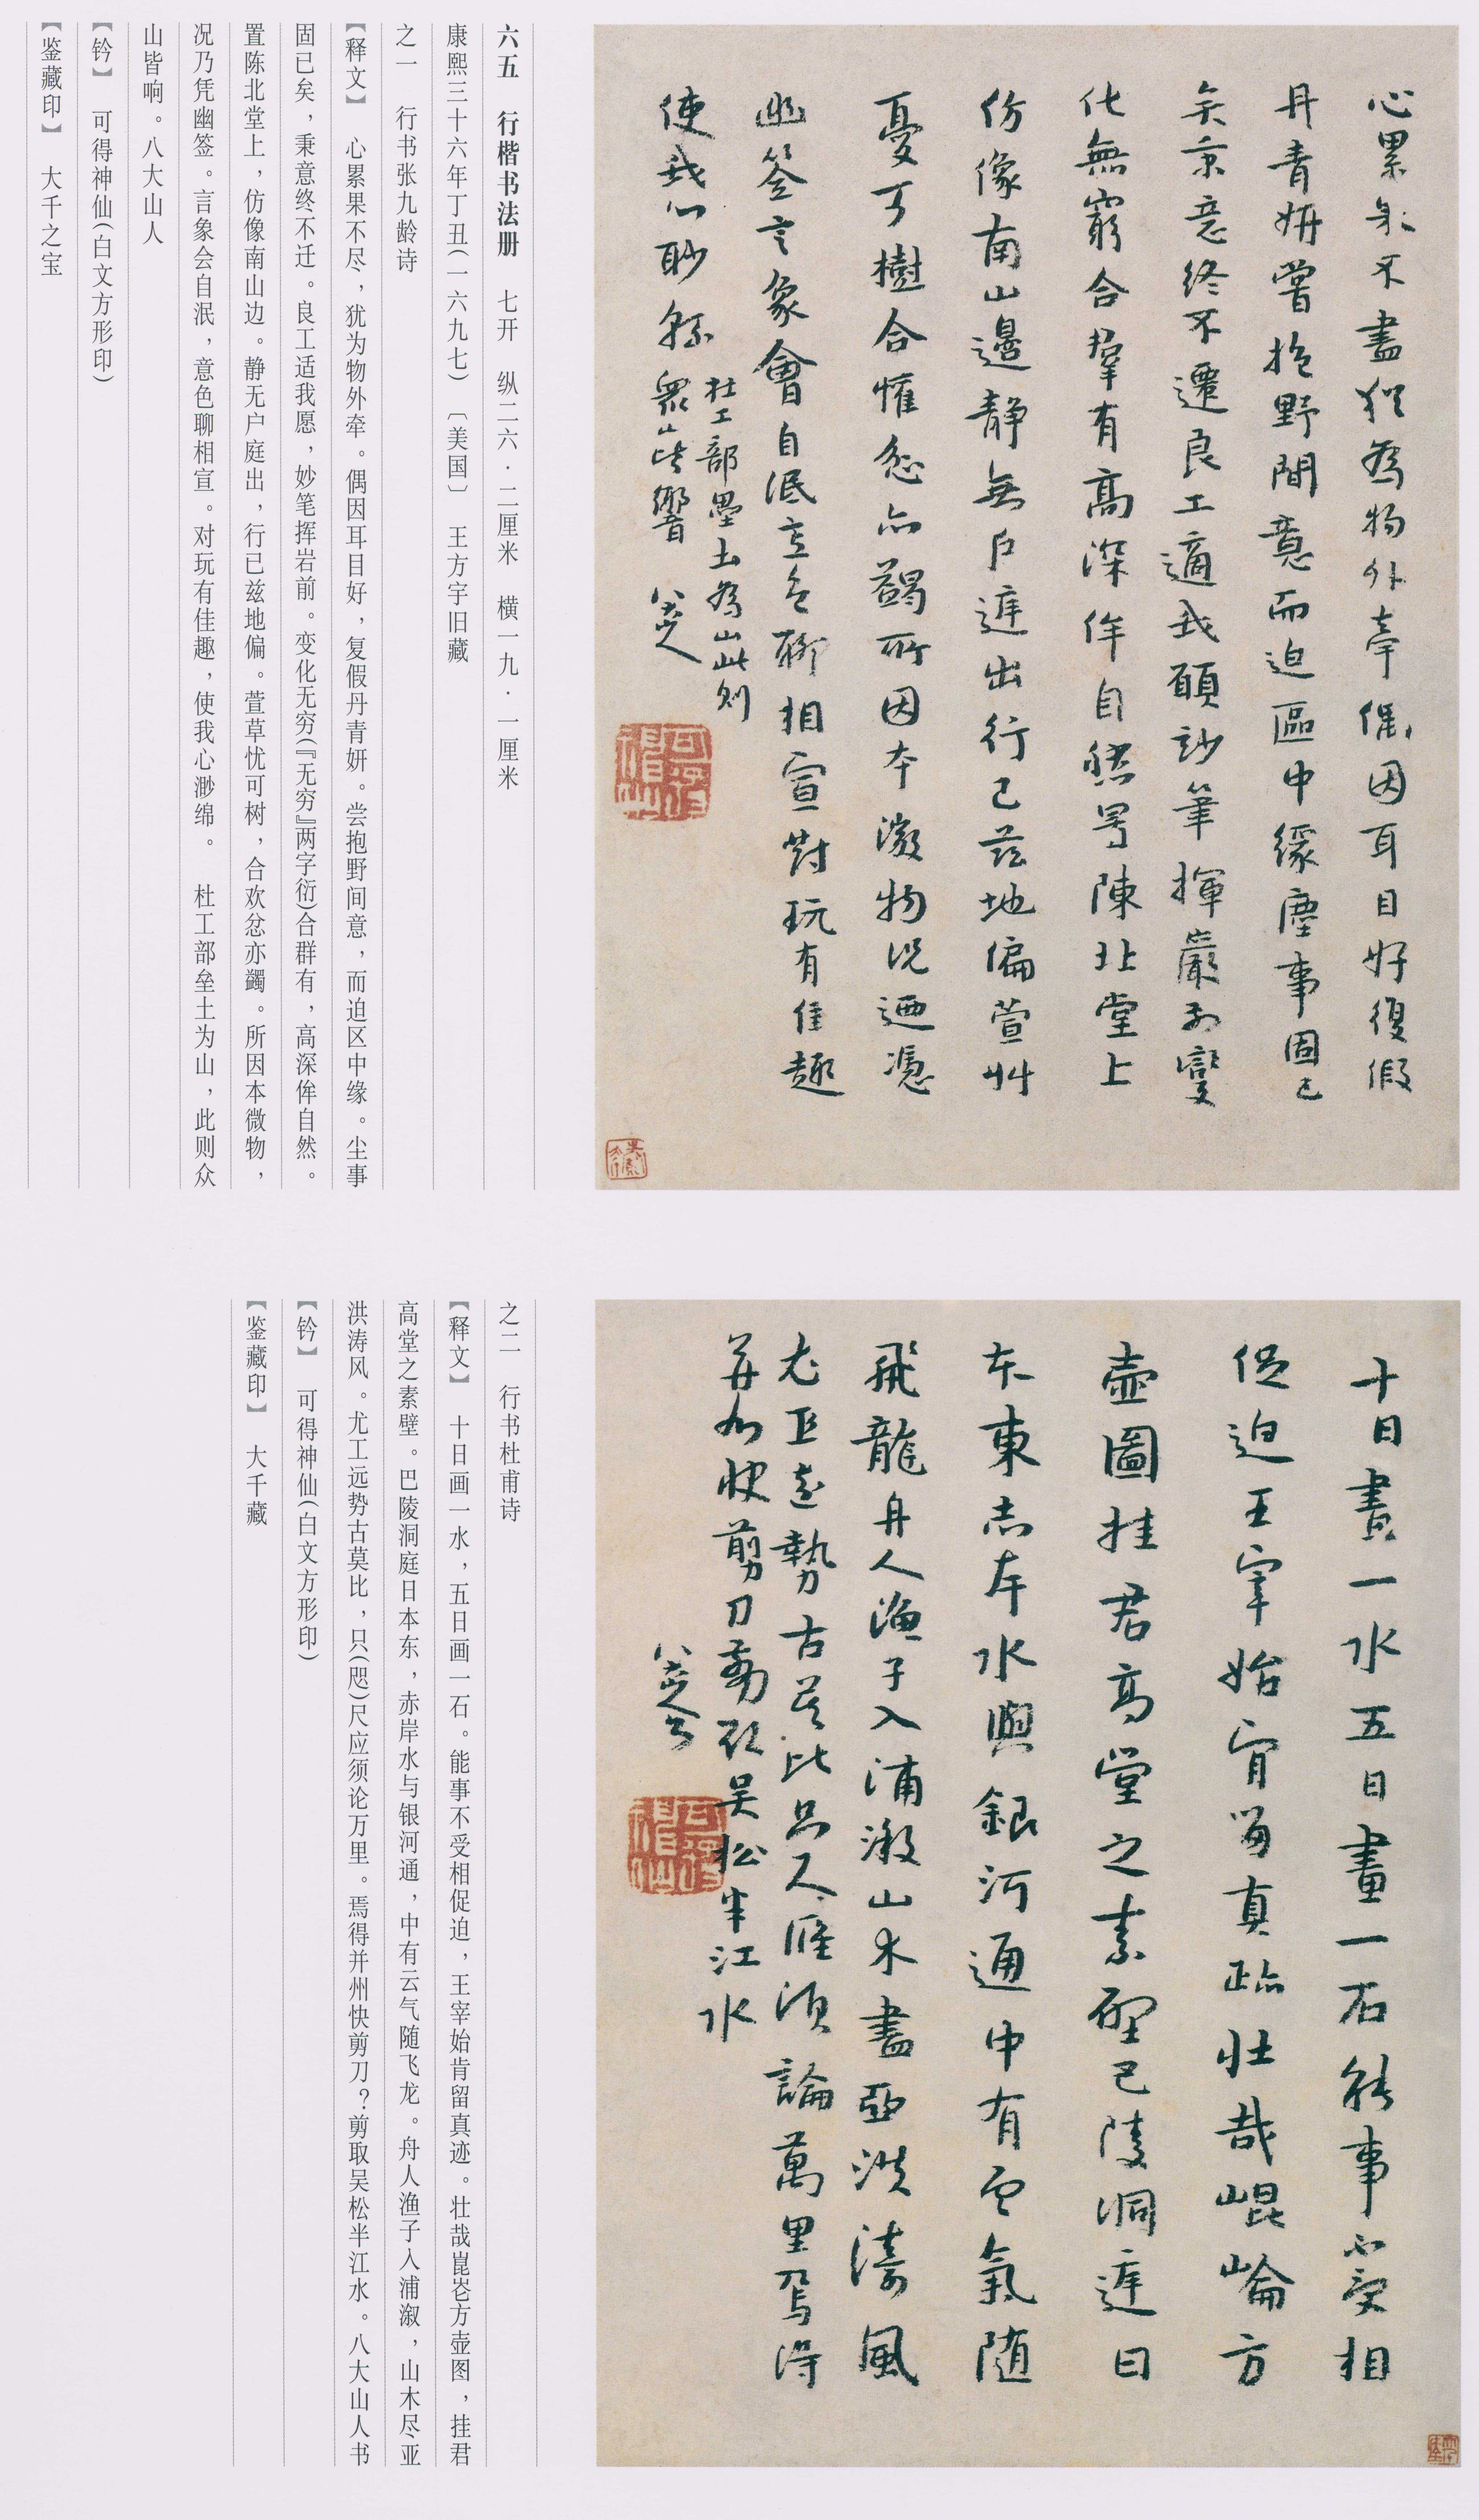 心累果不盡猶為物外牽偶因耳目好復假
丹青妍嘗抱野間意而迫區中緣塵事固已
矣秉意終不遷良工適我願妙筆揮巖前變
化無窮合羣有高深侔自然置陳北堂上
仿像南山邊靜無戶庭出行已茲地偏萱艸
憂可樹合懽忿亦蠲所因本微物況迺憑
幽签言象會自泯意色聊相宣對玩有佳趣
使我心眇緜
杜工部壘土為山此則
衆山皆響
八大山人
可得神仙
六五　行楷书法册　七开　纵二六·二厘米　横一九·一厘米
康熙三十六年丁丑(一六九七)〔美国〕　王方宇旧藏
之一　行书张九龄诗
【释文】　心累果不尽，犹为物外牵。偶因耳目好，复假丹青妍。尝抱野间意，而迫区中缘。尘事
固已矣，秉意终不迁。良工适我愿，妙笔挥岩前。变化无穷(『无穷』两字衍)合群有，高深侔自然。
置陈北堂上，仿像南山边。静无户庭出，行已兹地偏。萱草忧可树，合欢忿亦蠲。所因本微物，
况乃凭幽签。言象会自泯，意色聊相宣。对玩有佳趣，使我心渺绵。　杜工部垒土为山，此则众
山皆响。八大山人
【钤】　可得神仙(白文方形印)
【鉴藏印】　大千之宝
十日畫一水五日畫一石能事不受相
促迫王宰始肯留真跡壯哉崐崘方
壺圖挂君高堂之素壁巴陵洞庭日
本東赤岸水與銀河通中有雲氣随
飛龍舟人漁子入浦溆山木盡亞洪濤風
尤工遠勢古莫比只尺應須論萬里焉得
并州快剪刀剪取吳松半江水
八大山人書
可得神仙
之二　行书杜甫诗
【释文】　十日画一水，五日画一石。能事不受相促迫，王宰始肯留真迹。壮哉崑崙方壶图，挂君
高堂之素壁。巴陵洞庭日本东，赤岸水与银河通，中有云气随飞龙。舟人渔子入浦溆，山木尽亚
洪涛风。尤工远势古莫比，只(咫)尺应须论万里。焉得并州快剪刀？剪取吴松半江水。八大山人书
【钤】　可得神仙(白文方形印)
【鉴藏印】　大千藏